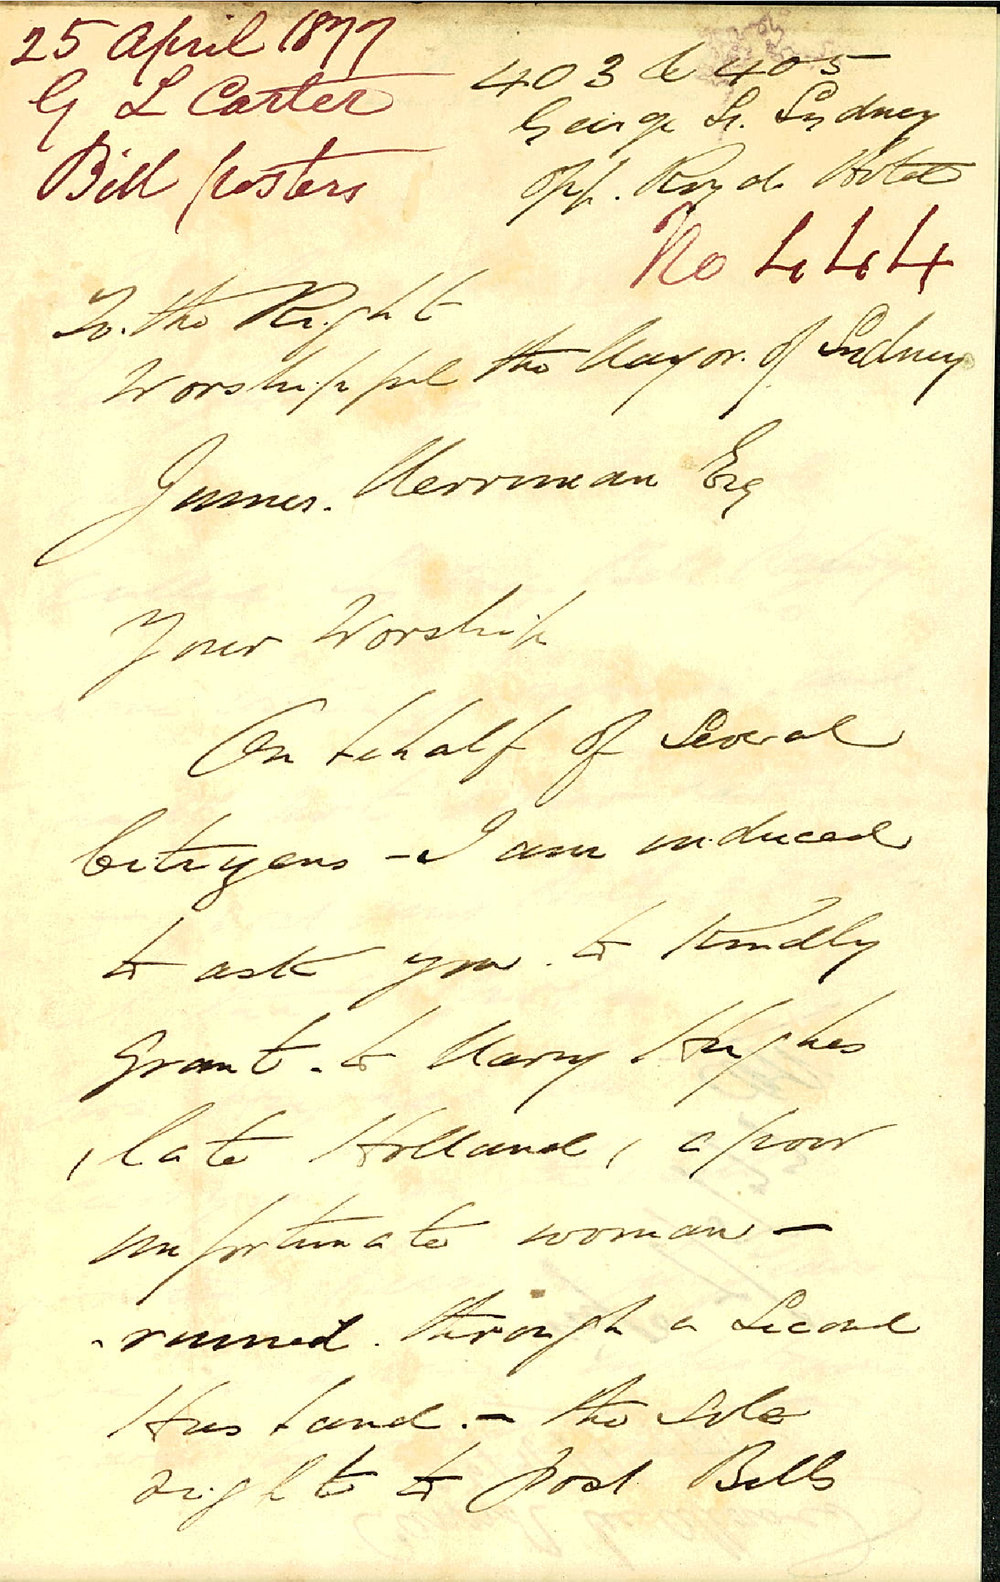 25 April 1877
G L Carter
Bill posters
403 & 405
George St. Sydney
opp. Royal Hotel
No 444
To. the Right
Worshipful the Mayor. of Sydney
James. Merriman Esq
Your Worship
On behalf of Several
Citizens - I am induced
to ask you. to Kindly
grant. to Mary Hughes
, late Holland, a poor
unfortunate woman -
- ruined. through a Second
Husband. - the sole
right to Post Bills